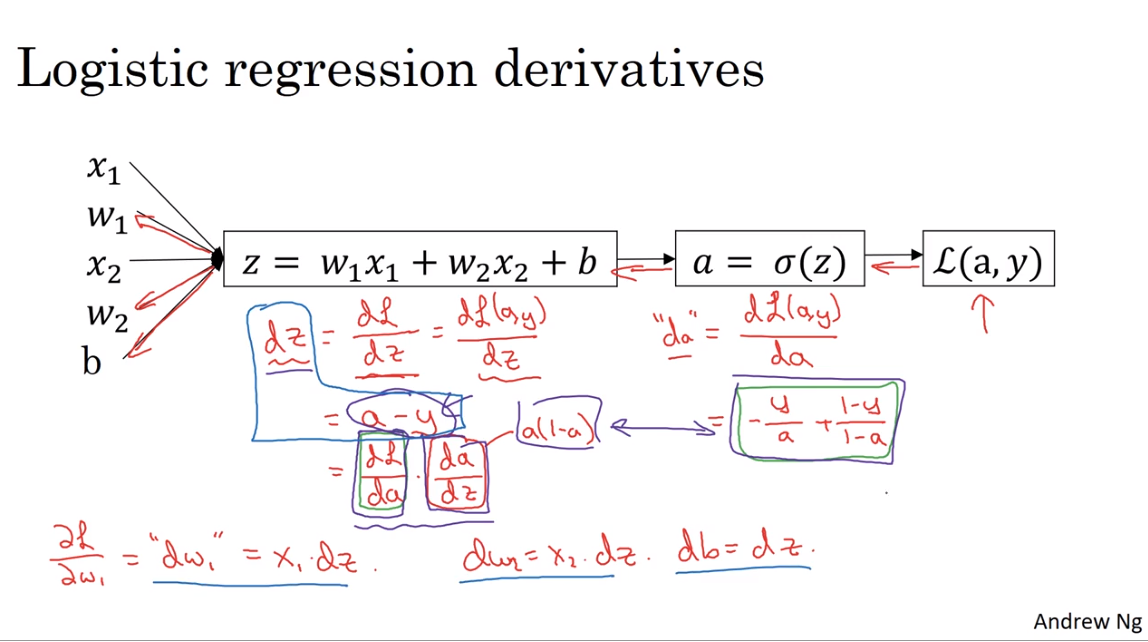 Logistic regression derivatives
x₁
w₁
x₂
w₂
b
z = w₁x₁ + w₂x₂ + b
a = σ(z)
ℒ(a, y)
dz = dℒ/dz = dℒ(a,y)/dz
= a − y
= dℒ/da · da/dz
a(1-a)
"da" = dℒ(a,y)/da
= -y/a + 1-y/1-a
∂ℒ/∂w₁ = "dw₁" = x₁·dz.
dw₂ = x₂·dz.
db = dz.
Andrew Ng